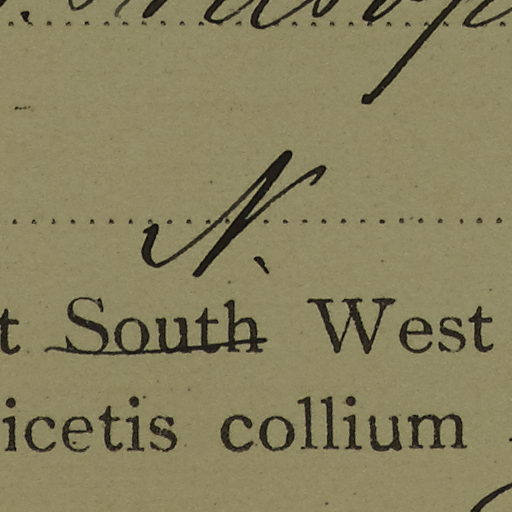 N.
t South West
icetis collium